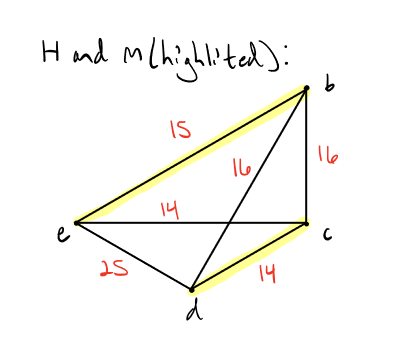 H and M(highlited):
b
15
16
16
14
e
c
25
14
d